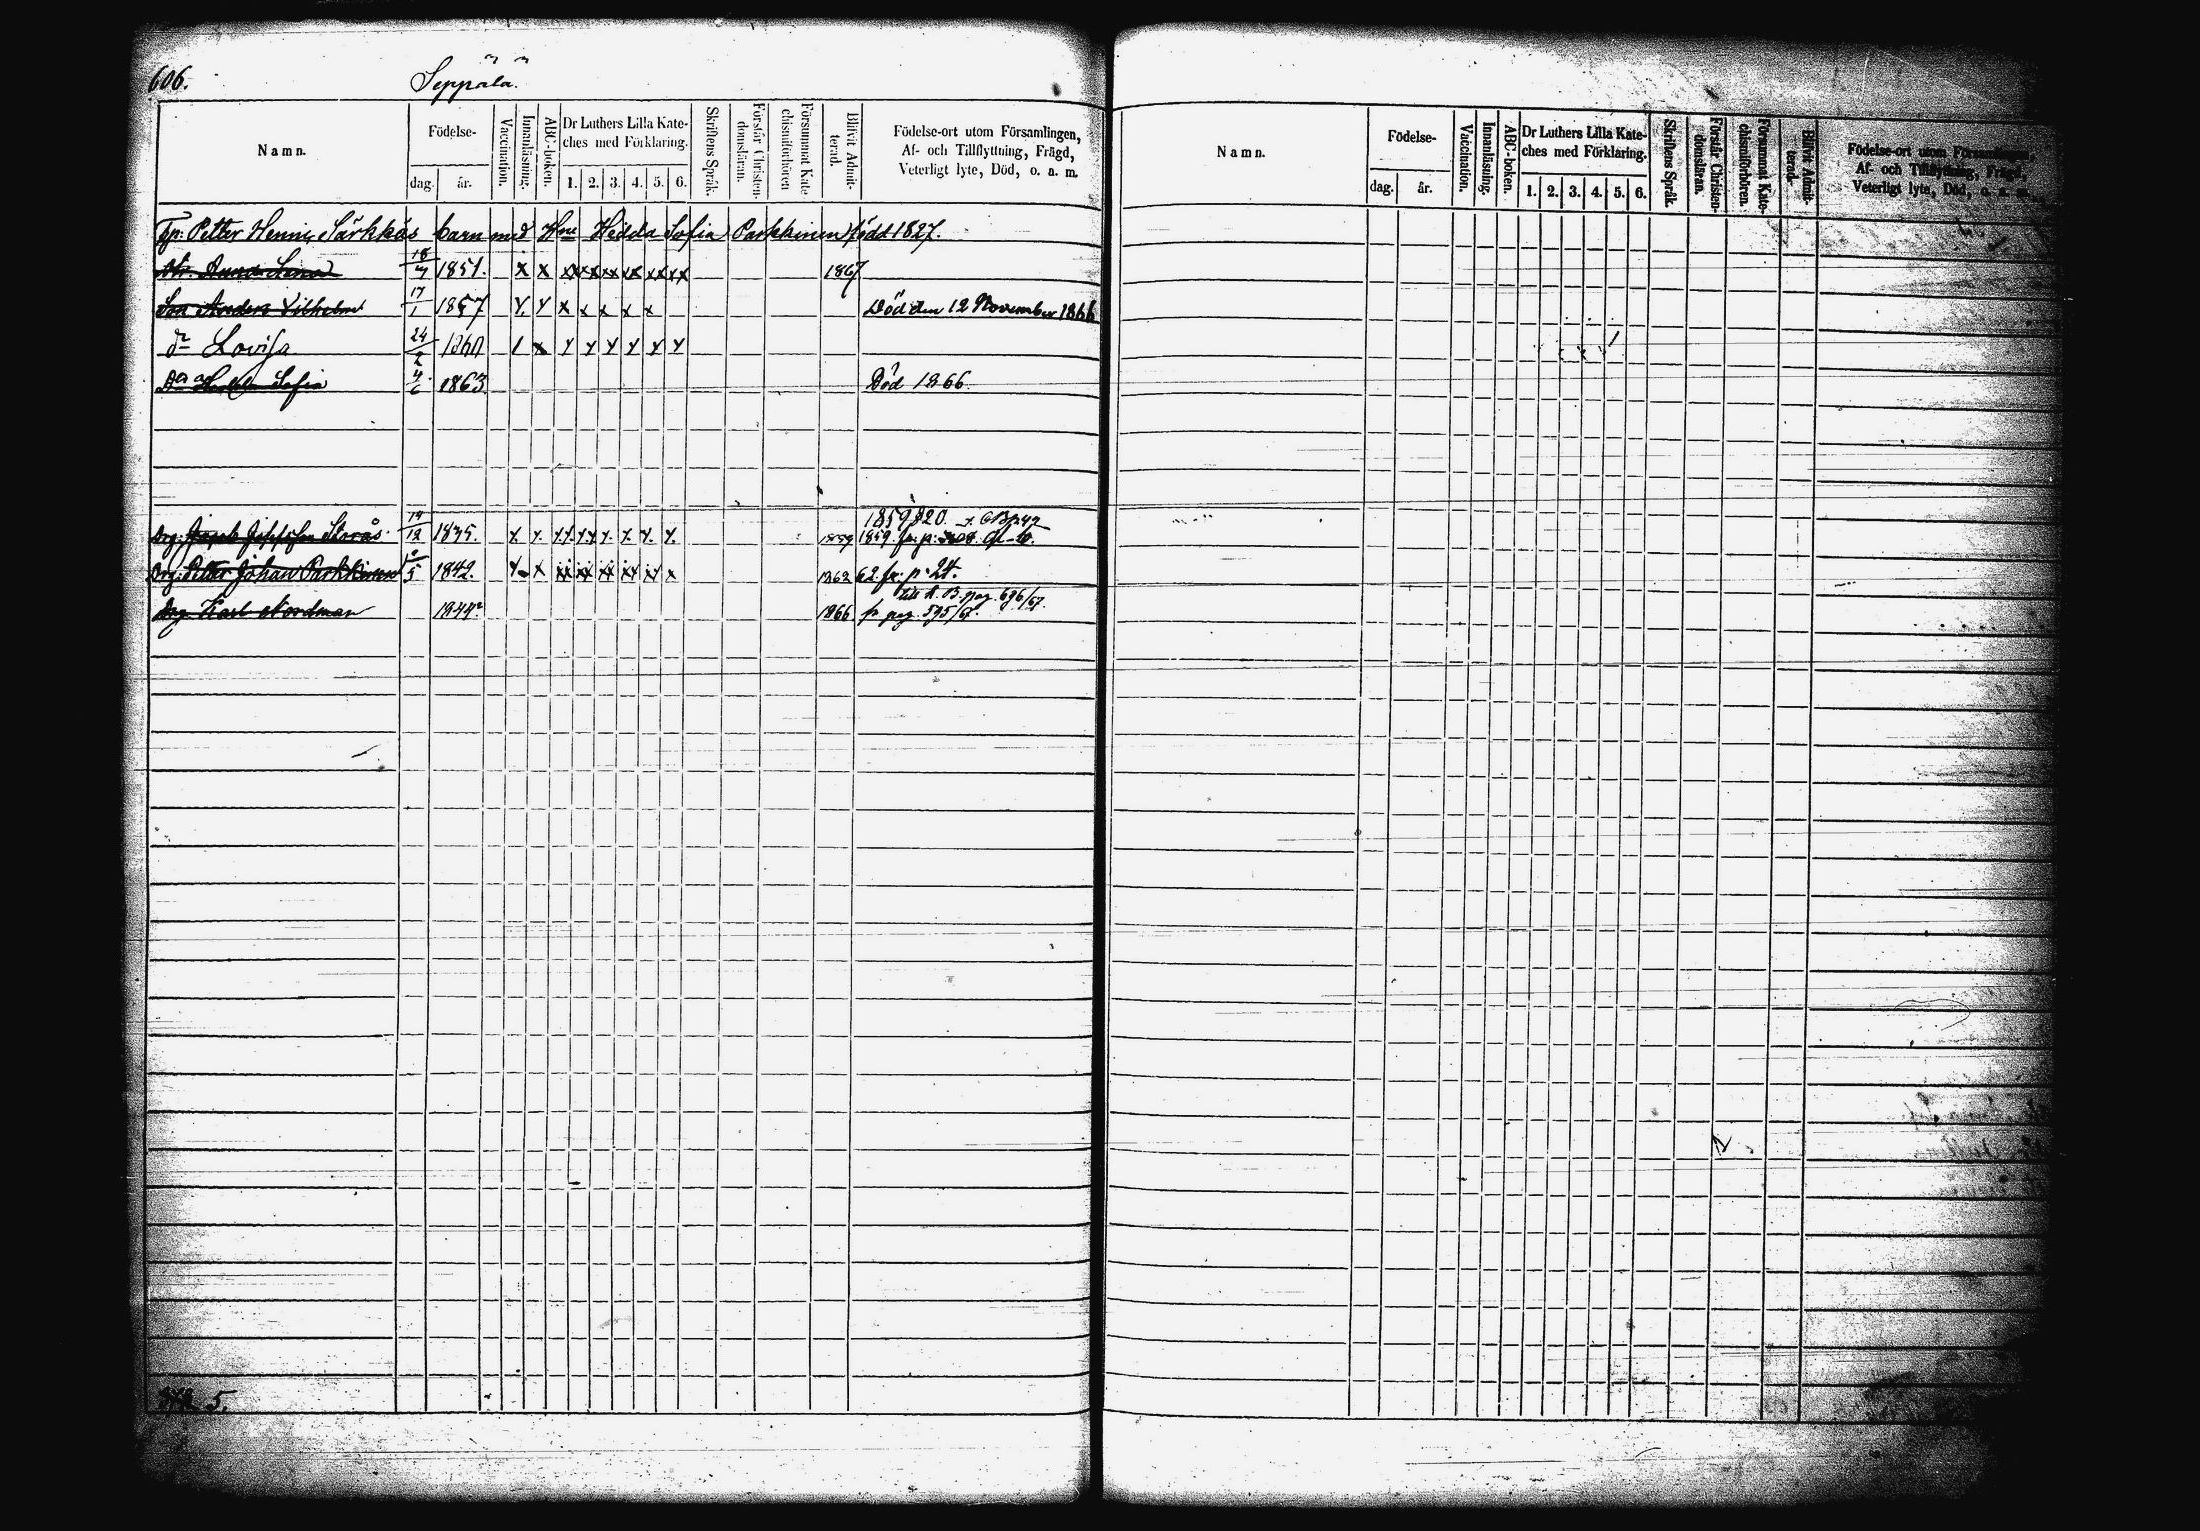 606.
Seppälä.
Namn.
Födelse-
dag. år.
Vaccination.
Innanläsning.
ABC-boken.
Dr Luthers Lilla Kate-
ches med Förklaring.
1. 2. 3. 4. 5. 6.
Skriftens Språk.
Förstår Christen-
domsläran.
Försummat Kate-
chismiförhören
Blifvit Admit-
terad.
Födelse-ort utom Församlingen,
Af- och Tillflyttning, Frägd,
Veterligt lyte, Död, o. a. m.
Petter Särkkäs barn med Hedda Sofia Parkkinen född 1827.
Anna Lena 18/7 1851. x x xx xx xx xx xx xx 1867
Son Anders Vilhelm 17/1 1857 x x x x x x x Död den 12 November 1866
Lovisa 24/2 1860 x x x x x x x
Sofia 4/6 1863. Död 1866.
1859 820.
Drg: Jakob Storås 14/12 1835. x x. x x x x x x. 1859 1859. fr. p:
Drg: Petter Johan Parkkinen 5 1842. x x xx xx xx xx xx x 1862 62. fr. p. 24.
till K. B. pag. 696/67.
Drg. Karl Nordman 1844. 1866 fr pag. 595/67.
5.
Namn.
Födelse-
dag. år.
Vaccination.
Innanläsning.
ABC-boken.
Dr Luthers Lilla Kate-
ches med Förklaring.
1. 2. 3. 4. 5. 6.
Skriftens Språk.
Förstår Christen-
domsläran.
Försummat Kate-
chismiförhören.
Blifvit Admit-
terad.
Födelse-ort utom Församlingen,
Af- och Tillflyttning, Frägd,
Veterligt lyte, Död, o. a. m.